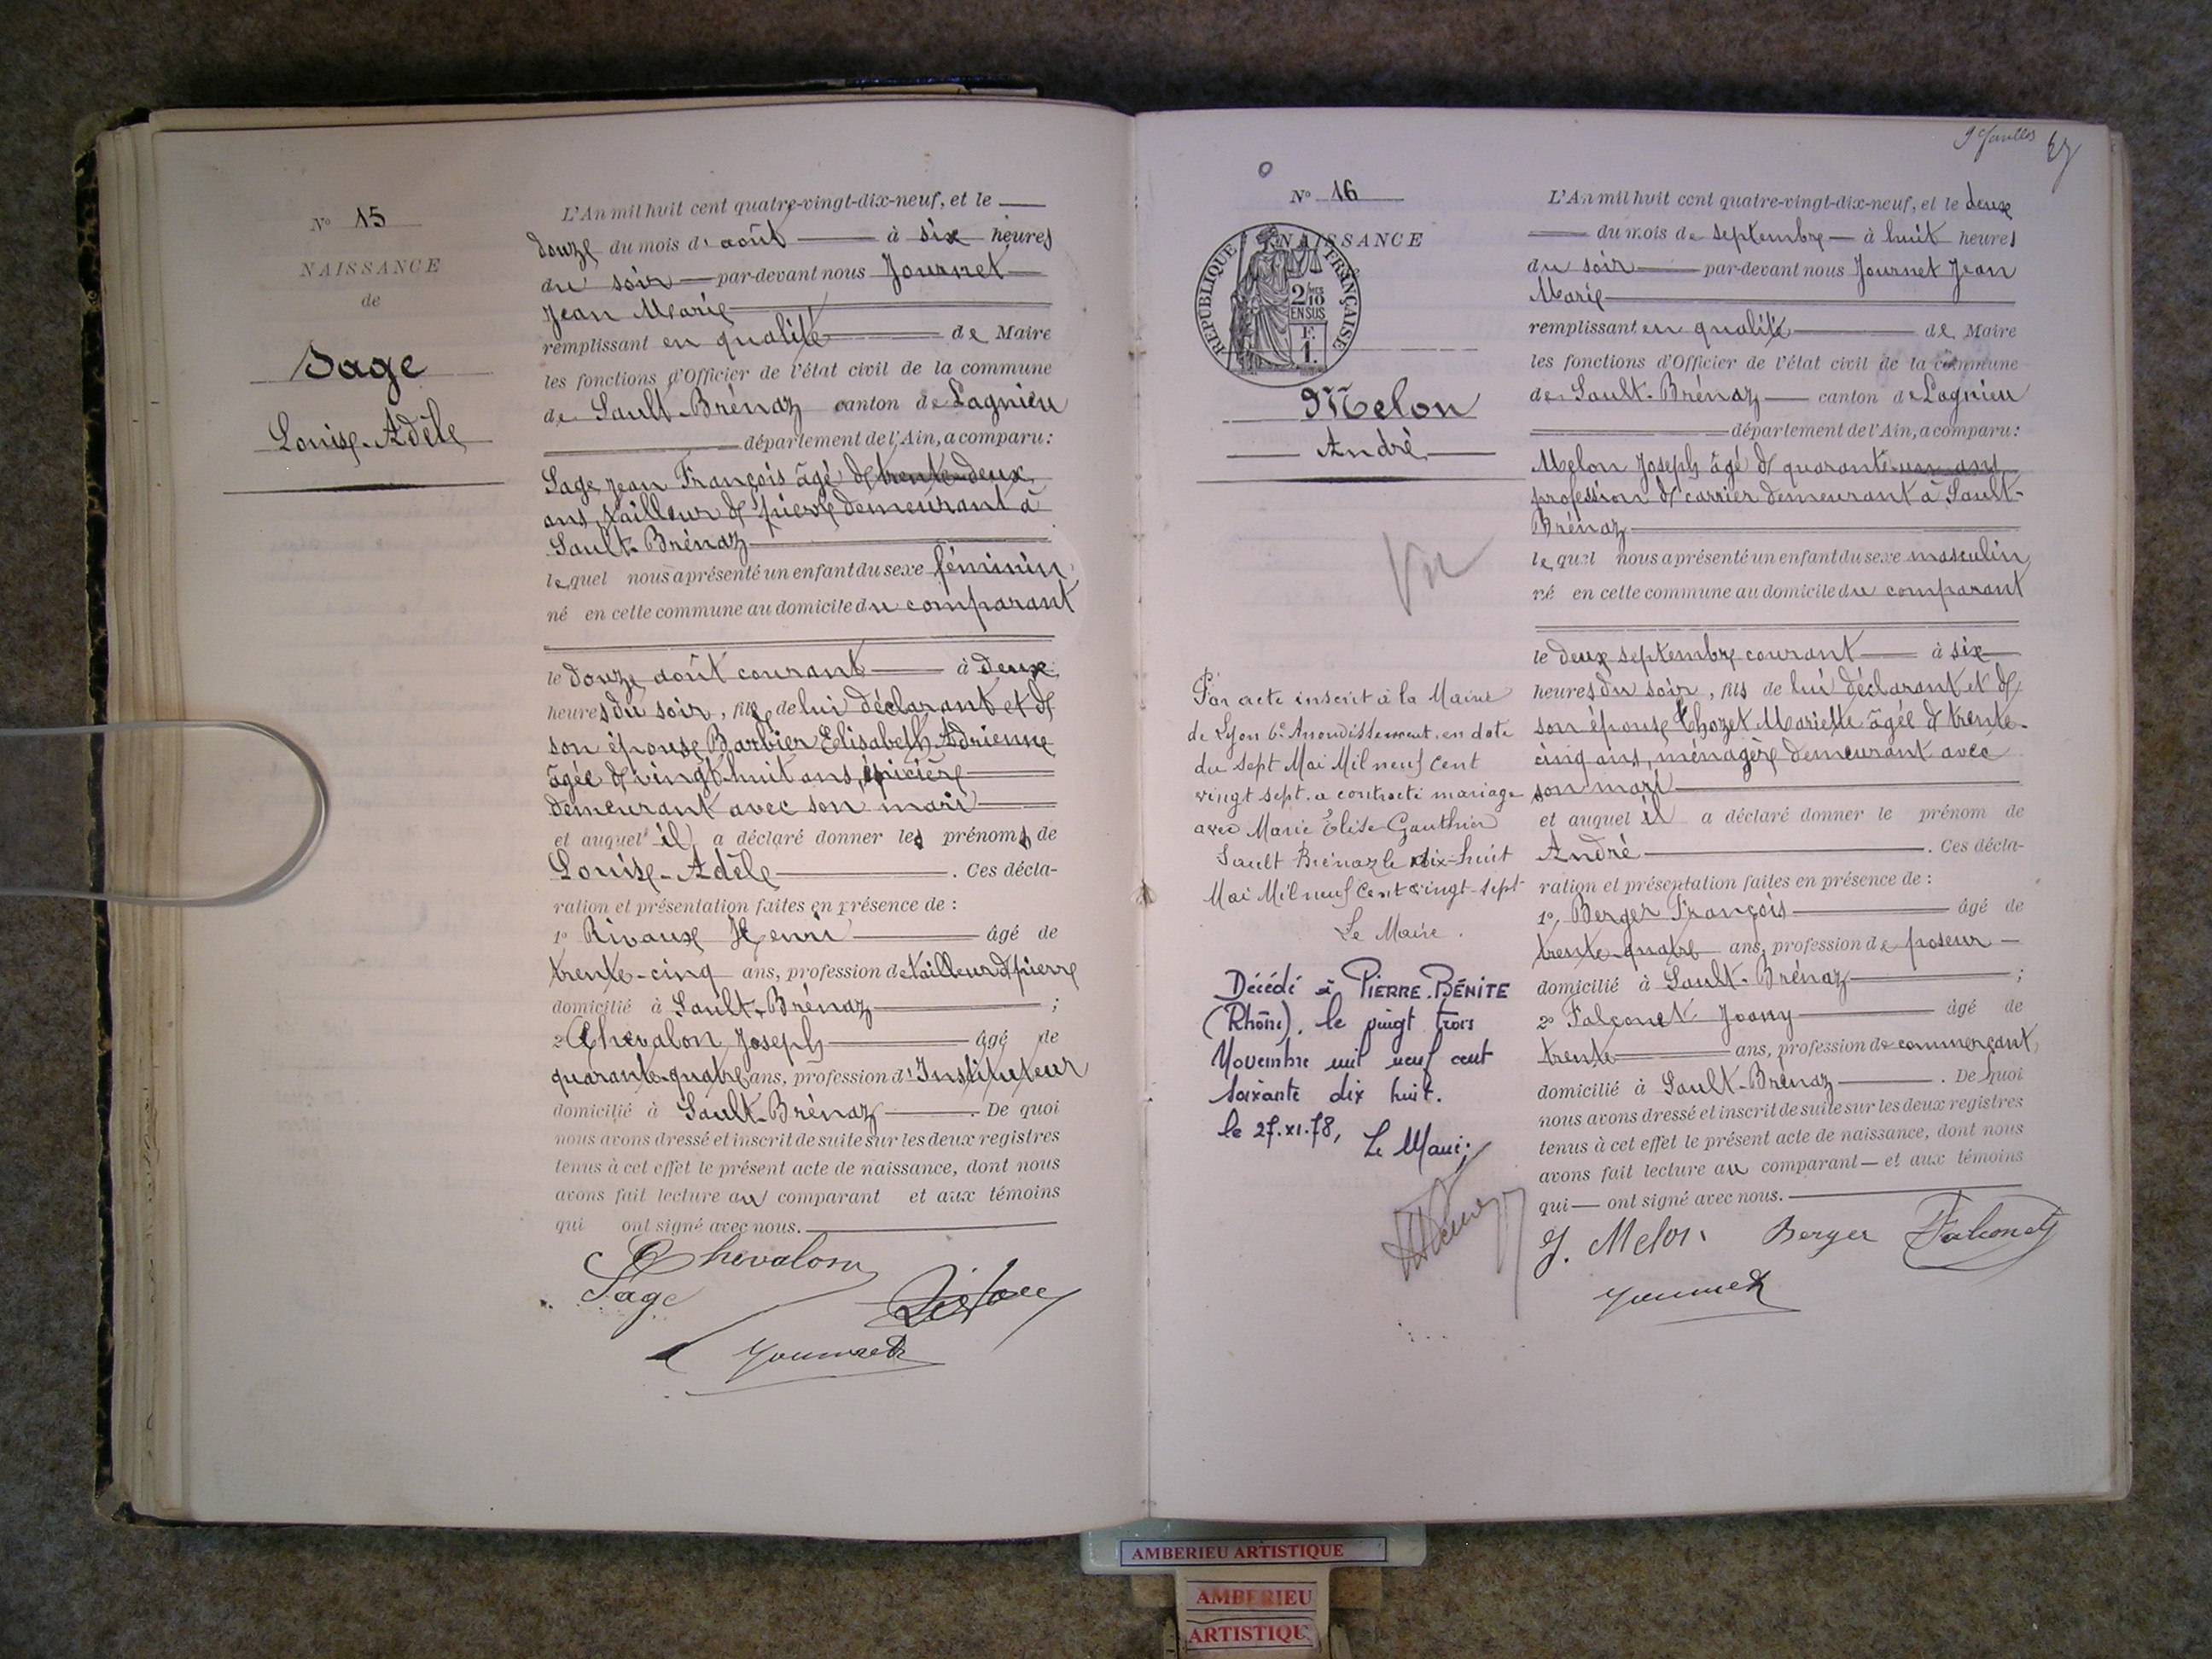 N° 15
NAISSANCE
de
Sage
Louise-Adèle
L'An mil huit cent quatre-vingt-dix-neuf, et le
douze du mois d'août à six heures
du soir par-devant nous Journet
Jean Marie
remplissant en qualité de Maire
les fonctions d'Officier de l'état civil de la commune
de Sault-Brénaz canton de Lagnieu
département de l'Ain, a comparu :
Sage Jean François âgé de trente-deux
ans, tailleur de pierre demeurant à
Sault-Brénaz
lequel nous a présenté un enfant du sexe féminin
né en cette commune au domicile du comparant
le douze août courant à deux
heures du soir, fils de lui déclarant et de
son épouse Barbier Elisabeth Adrienne
âgée de vingt-huit ans, épicière
demeurant avec son mari
et auquel il a déclaré donner les prénoms de
Louise-Adèle. Ces décla-
ration et présentation faites en présence de :
1° Rivaux Henri âgé de
trente-cinq ans, profession de tailleur de pierre
domicilié à Sault-Brénaz ;
2° Chevalon Joseph âgé de
quarante-quatre ans, profession d'Instituteur
domicilié à Sault-Brénaz. De quoi
nous avons dressé et inscrit de suite sur les deux registres
tenus à cet effet le présent acte de naissance, dont nous
avons fait lecture au comparant et aux témoins
qui ont signé avec nous.
Chevalon
Sage
Journet
N° 16
NAISSANCE
RÉPUBLIQUE FRANÇAISE
2/10
EN SUS
F.
1.
Melon
André
Vu
Par acte inscrit à la Mairie
de Lyon 6e Arrondissement, en date
du sept Mai Mil neuf cent
vingt sept, a contracté mariage
avec Marie Elise Gauthier
Sault Brénaz le dix-huit
Mai Mil neuf Cent vingt-sept
Le Maire.
Décédé à PIERRE-BÉNITE
(Rhône), le vingt trois
Novembre mil neuf cent
soixante dix huit.
le 27.XI.78,
Le Maire:
L'An mil huit cent quatre-vingt-dix-neuf, et le deux
du mois de septembre à huit heures
du soir par-devant nous Journet Jean
Marie
remplissant en qualité de Maire
les fonctions d'Officier de l'état civil de la commune
de Sault-Brénaz canton de Lagnieu
département de l'Ain, a comparu :
Melon Joseph âgé de quarante-un ans
profession de carrier demeurant à Sault-
Brénaz
lequel nous a présenté un enfant du sexe masculin
né en cette commune au domicile du comparant
le deux septembre courant à six
heures du soir, fils de lui déclarant et de
son épouse Chozet Mariette âgée de trente-
cinq ans, ménagère demeurant avec
son mari
et auquel il a déclaré donner le prénom de
André. Ces décla-
ration et présentation faites en présence de :
1° Berger François âgé de
trente-quatre ans, profession de poseur
domicilié à Sault-Brénaz ;
2° Falconet Joany âgé de
trente ans, profession de commerçant
domicilié à Sault-Brénaz. De quoi
nous avons dressé et inscrit de suite sur les deux registres
tenus à cet effet le présent acte de naissance, dont nous
avons fait lecture au comparant et aux témoins
qui ont signé avec nous.
J. Melon Berger Falconet
Journet
AMBERIEU ARTISTIQUE
AMBERIEU
ARTISTIQU